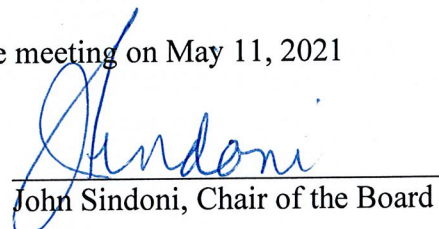 e meeting on May 11, 2021
JSindoni
John Sindoni, Chair of the Board